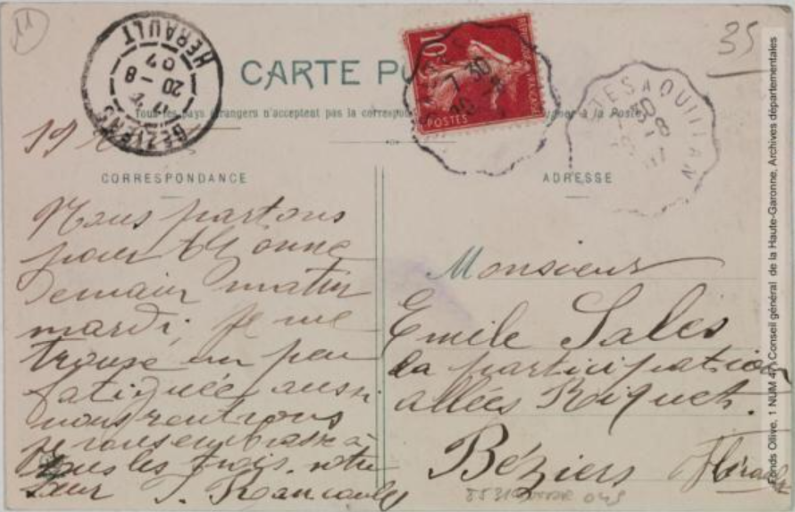 11
35
BÉZIERS
20 - 8
07
HÉRAULT
CARTE PO
Tous les pays étrangers n'acceptent pas la corresp
à la Poste
10
POSTES
A QUILLAN
CORRESPONDANCE
ADRESSE
19
Nous partons
pour
Demain matin
mardi, je me
trouve un peu
fatiguée aussi
nous rentrons
je vous embrasse à
tous les trois. votre
sœur J.
Monsieur
Emile Sales
la participation
allées Riquet.
Béziers Hérault
Fonds Ollive, 1 NUM 47, Conseil général de la Haute-Garonne, Archives départementales